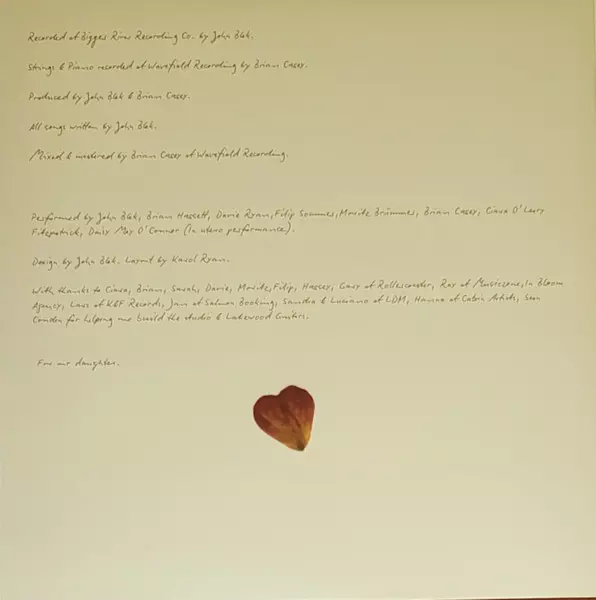 Recorded at Bigger River Recording Co. by John Blek.
Strings & Piano recorded at Wavefield Recording by Brian Casey.
Produced by John Blek & Brian Casey.
All songs written by John Blek.
Mixed & mastered by Brian Casey at Wavefield Recording.
Performed by John Blek, Brian Hassett, Davie Ryan, Filip Sommer, Moritz Brümmer, Brian Casey, Ciara O'Leary
Fitzpatrick, Daisy May O'Connor (in utero performance).
Design by John Blek. Layout by Karol Ryan.
With thanks to Ciara, Brian, Sarah, Davie, Moritz, Filip, Hassey, Gary at Rollercoaster, Ray at Musiczone, In Bloom
Agency, Lars at K&F Records, Jan at Salmon Booking, Sandra & Luciano at LDM, Hanna at Cabin Artists, Sean
for helping me build the studio & Lakewood Guitars.
For our daughter.